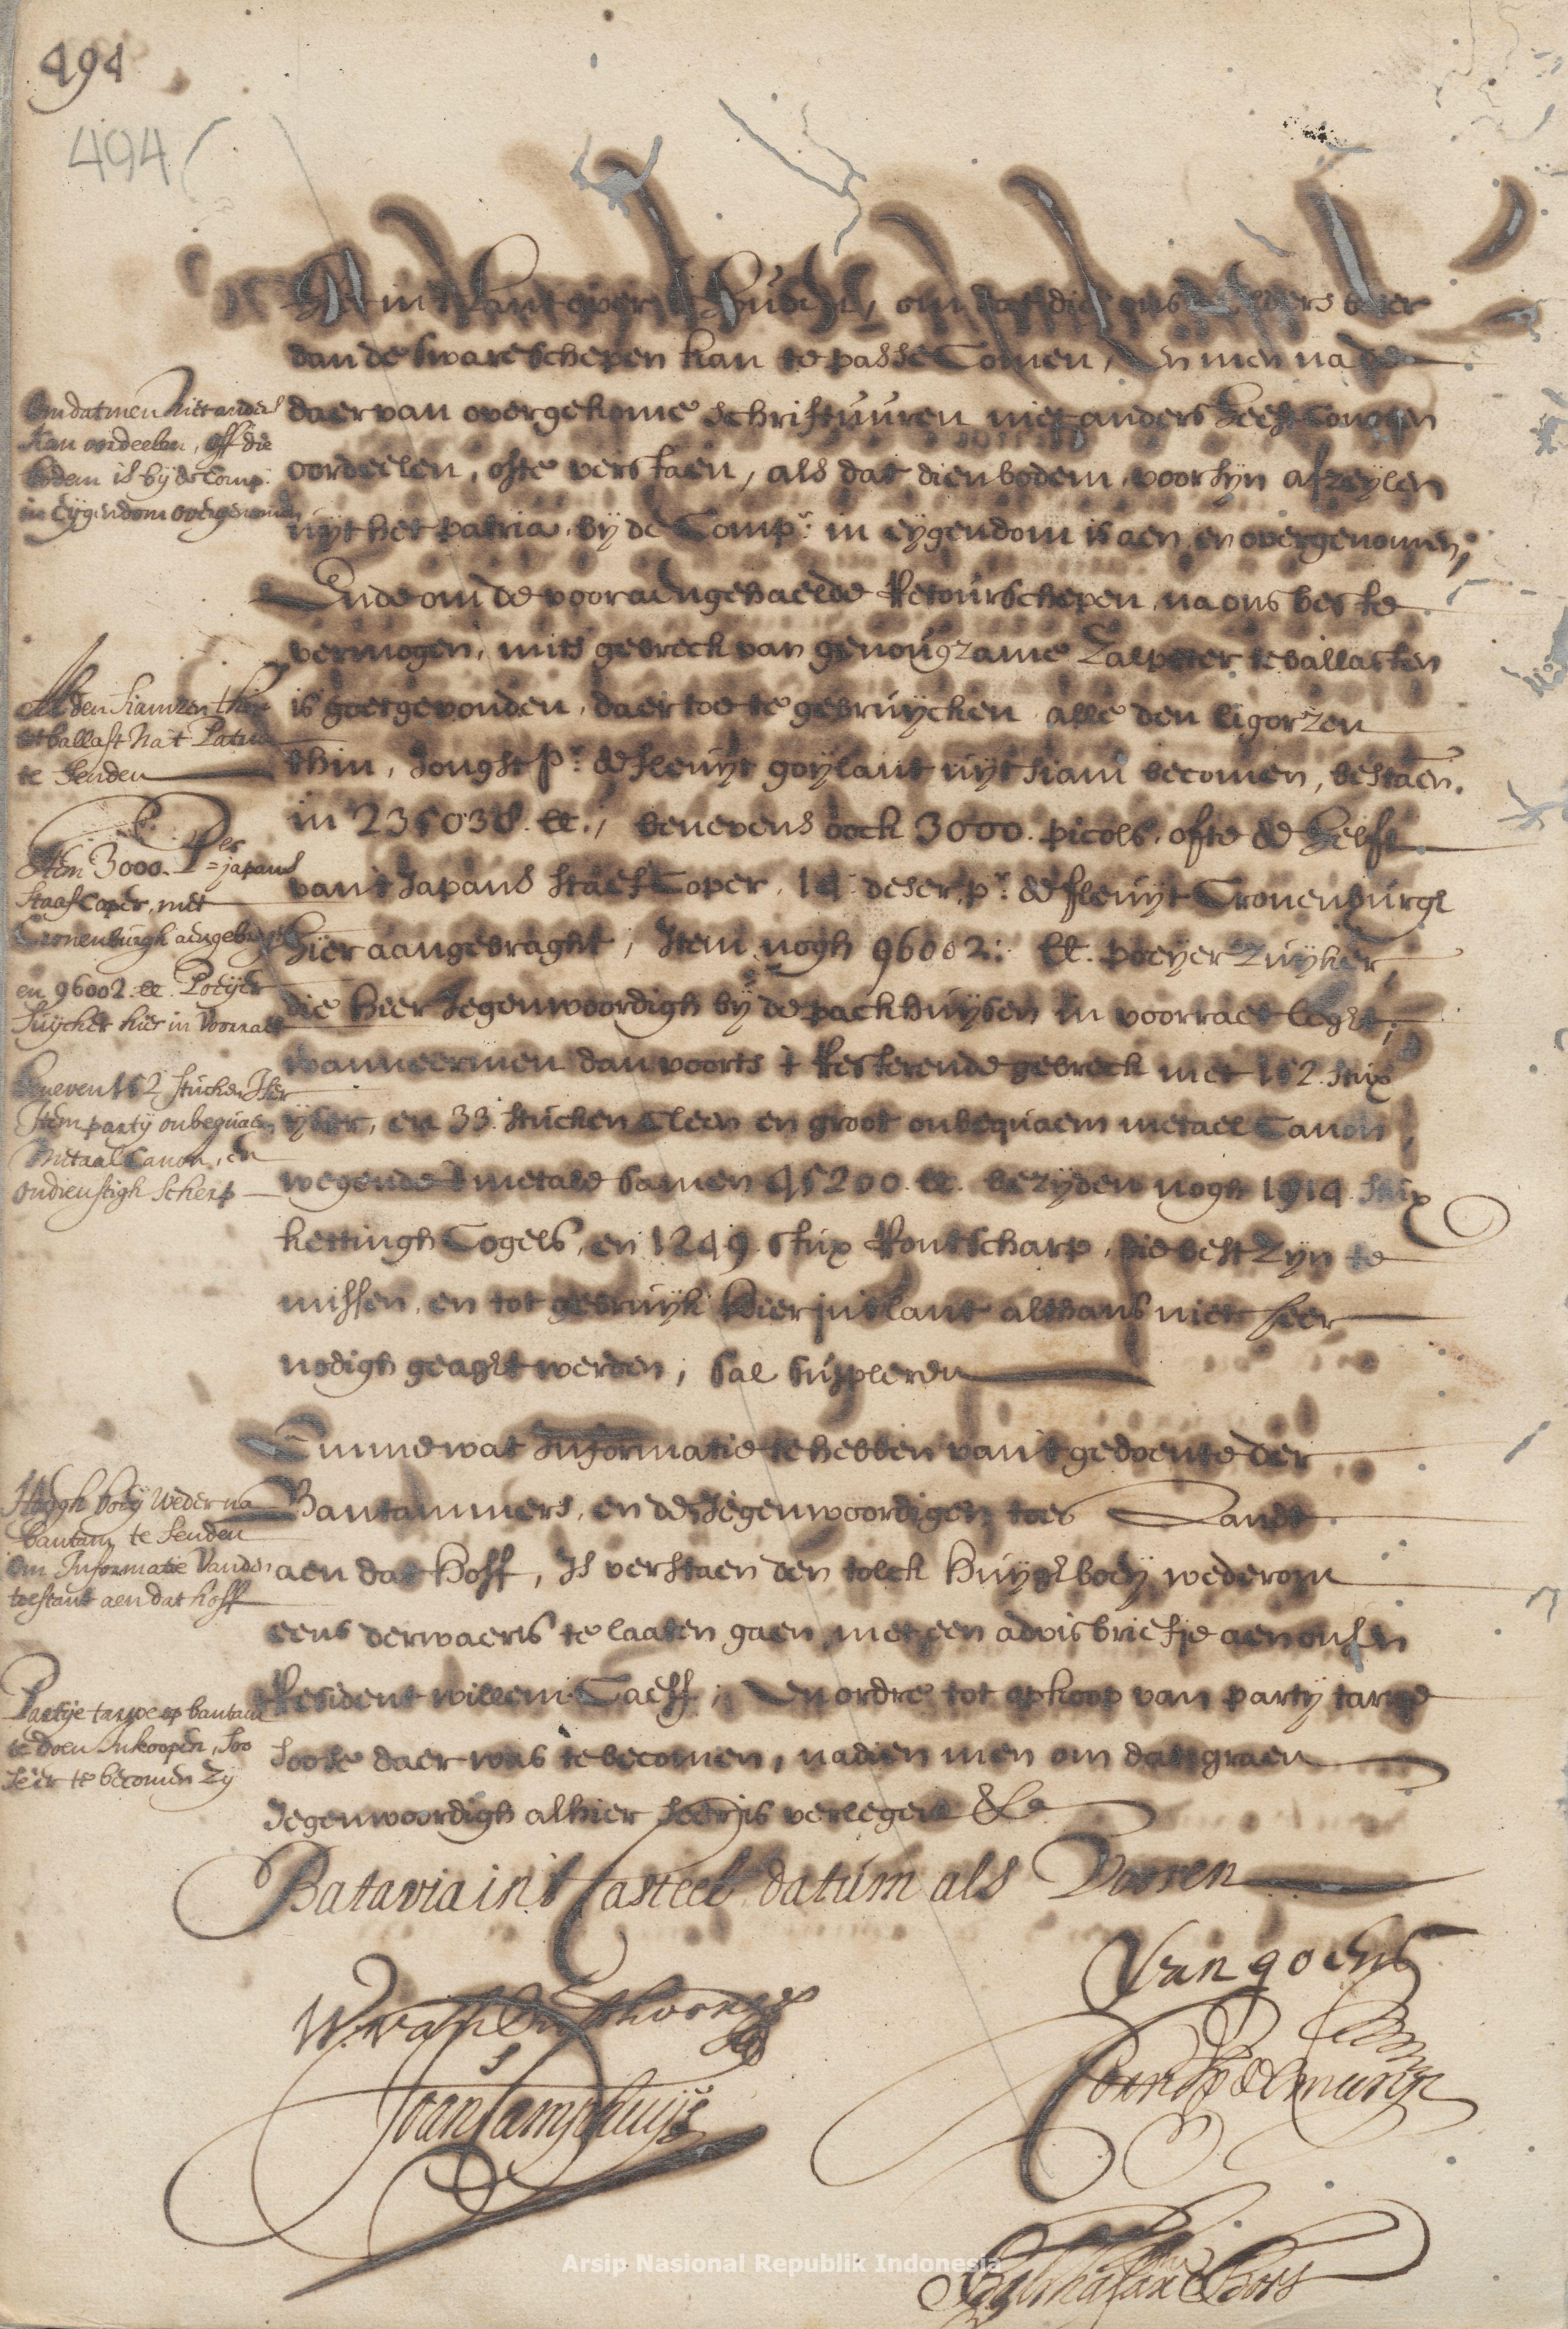 494
494
in 't Lant over te houden, om dat die ons elders beter
dan de sware schepen kan te passe Comen, En men na de
daer van overgekome schriftuuren niet anders heeft Connen
oordeelen, ofte verstaen, als dat dien bodem, voor syn afzeylen
uyt het patria, by de Compe: in eygendom is aen en overgenomen;
Omdatmen niet anders
kan oordeelen, off die
bodem is by de Comp:
in Eygendom overgenomen
Ende om de vooraengehaelde Retourschepen, na ons beste
vermogen, mits gebreck van genoughzame Zalpeter te ballasten
is goetgevonden, daer toe te gebruycken alle den ligorzen
thin, Jonghst pr: de fleuyt goylant uyt siam becomen, bestaen.
in 235038. lb., benevens oock 3000. picols, ofte de helft
van 't Japans staef Coper, 14 deser, pr: de fleuyt Cronenburgh
hier aangebraght, Item nogh 96002: lb. poeyer Zuyker,
die hier Jegenwoordigh by de packhuysen in voorraet leght,
wanneermen dan voorts t Resterende gebreck met 162 stux
yser, en 33 stucken Cleen en groot onbequaem metael Canon,
wegende t metale samen 45200. lb. bezyden nogh 1914 stux
kettingh Cogels, en 1249 stux Rontscharp, die best zyn te
missen, en tot gebruyk hier int lant althans niet seer
nodigh geaght werden, sal supleren
All den siamzen thin
tot ballast na 't Patria
te senden
Item 3000. Pls japans
staaf Coper, met
Cronenburgh aengebraght
en 96002 lb. Poeyer
suycker hier in voorraet
Beneven 162 stucken Yser
Item party onbequaem
Metaal Canon, en
ondienstigh scherp
Omme wat Informatie te hebben van 't gedoente der
Bantammers, en de Jegenwoordigen toe Standt
aen dat Hoff, Is verstaen den tolck Huyghboey wederom
eens derwaerts te laaten gaen, met een advis briefje aen onsen
Resident willem Caeff; En ordre tot opkoop van party tarwe
soo se daer was te becomen, nadien men om dat graen
Jegenwoordigh alhier seer is verlegen &a
Huygh boey weder na
bantam te senden
Om Informatie van den
toestant aen dat hoff
Partye tarwe op bantam
te doen Inkoopen, soo
se er te becomen zy
Batavia in't Casteel datum als Vooren
Van goens
W. van Outhoorn
Joan Camphuys
Corns Speelman
Balthasar Bort
Arsip Nasional Republik Indonesia